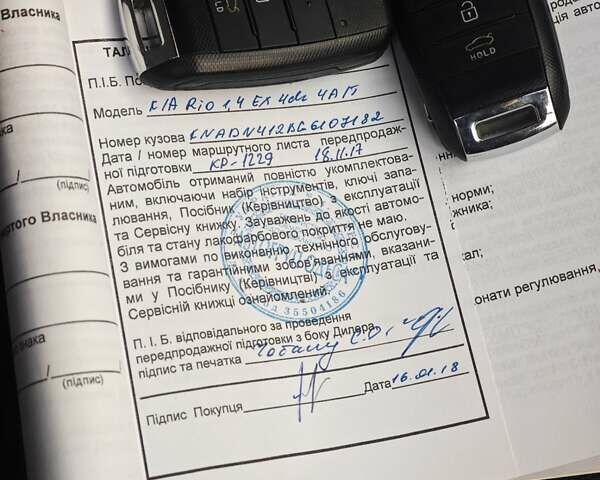 Власника
ТАЛ
П.І.Б. По
Модель KIA Rio 1,4 EX 4dr 4AT
Номер кузова KNADN412BG6107182
Дата / номер маршрутного листа передпродаж-
ної підготовки KP-1229 18.11.17
Автомобіль отриманий повністю укомплектова-
ним, включаючи набір інструментів, ключі запа-
лювання, Посібник (Керівництво) з експлуатації
та Сервісну книжку. Зауважень до якості автомо-
біля та стану лакофарбового покриття не маю.
З вимогами по виконанню технічного обслугову-
вання та гарантійними зобов'язаннями, вказани-
ми у Посібнику (Керівництві) з експлуатації та
Сервісній книжці ознайомлений.
35504186
П. І. Б. відповідального за проведення
передпродажної підготовки з боку Дилера,
підпис та печатка
Підпис Покупця Дата 16.01.18
(підпис)
ротого Власника
знака
(підпис)
HOLD
норми;
жника;
онати регулювання,